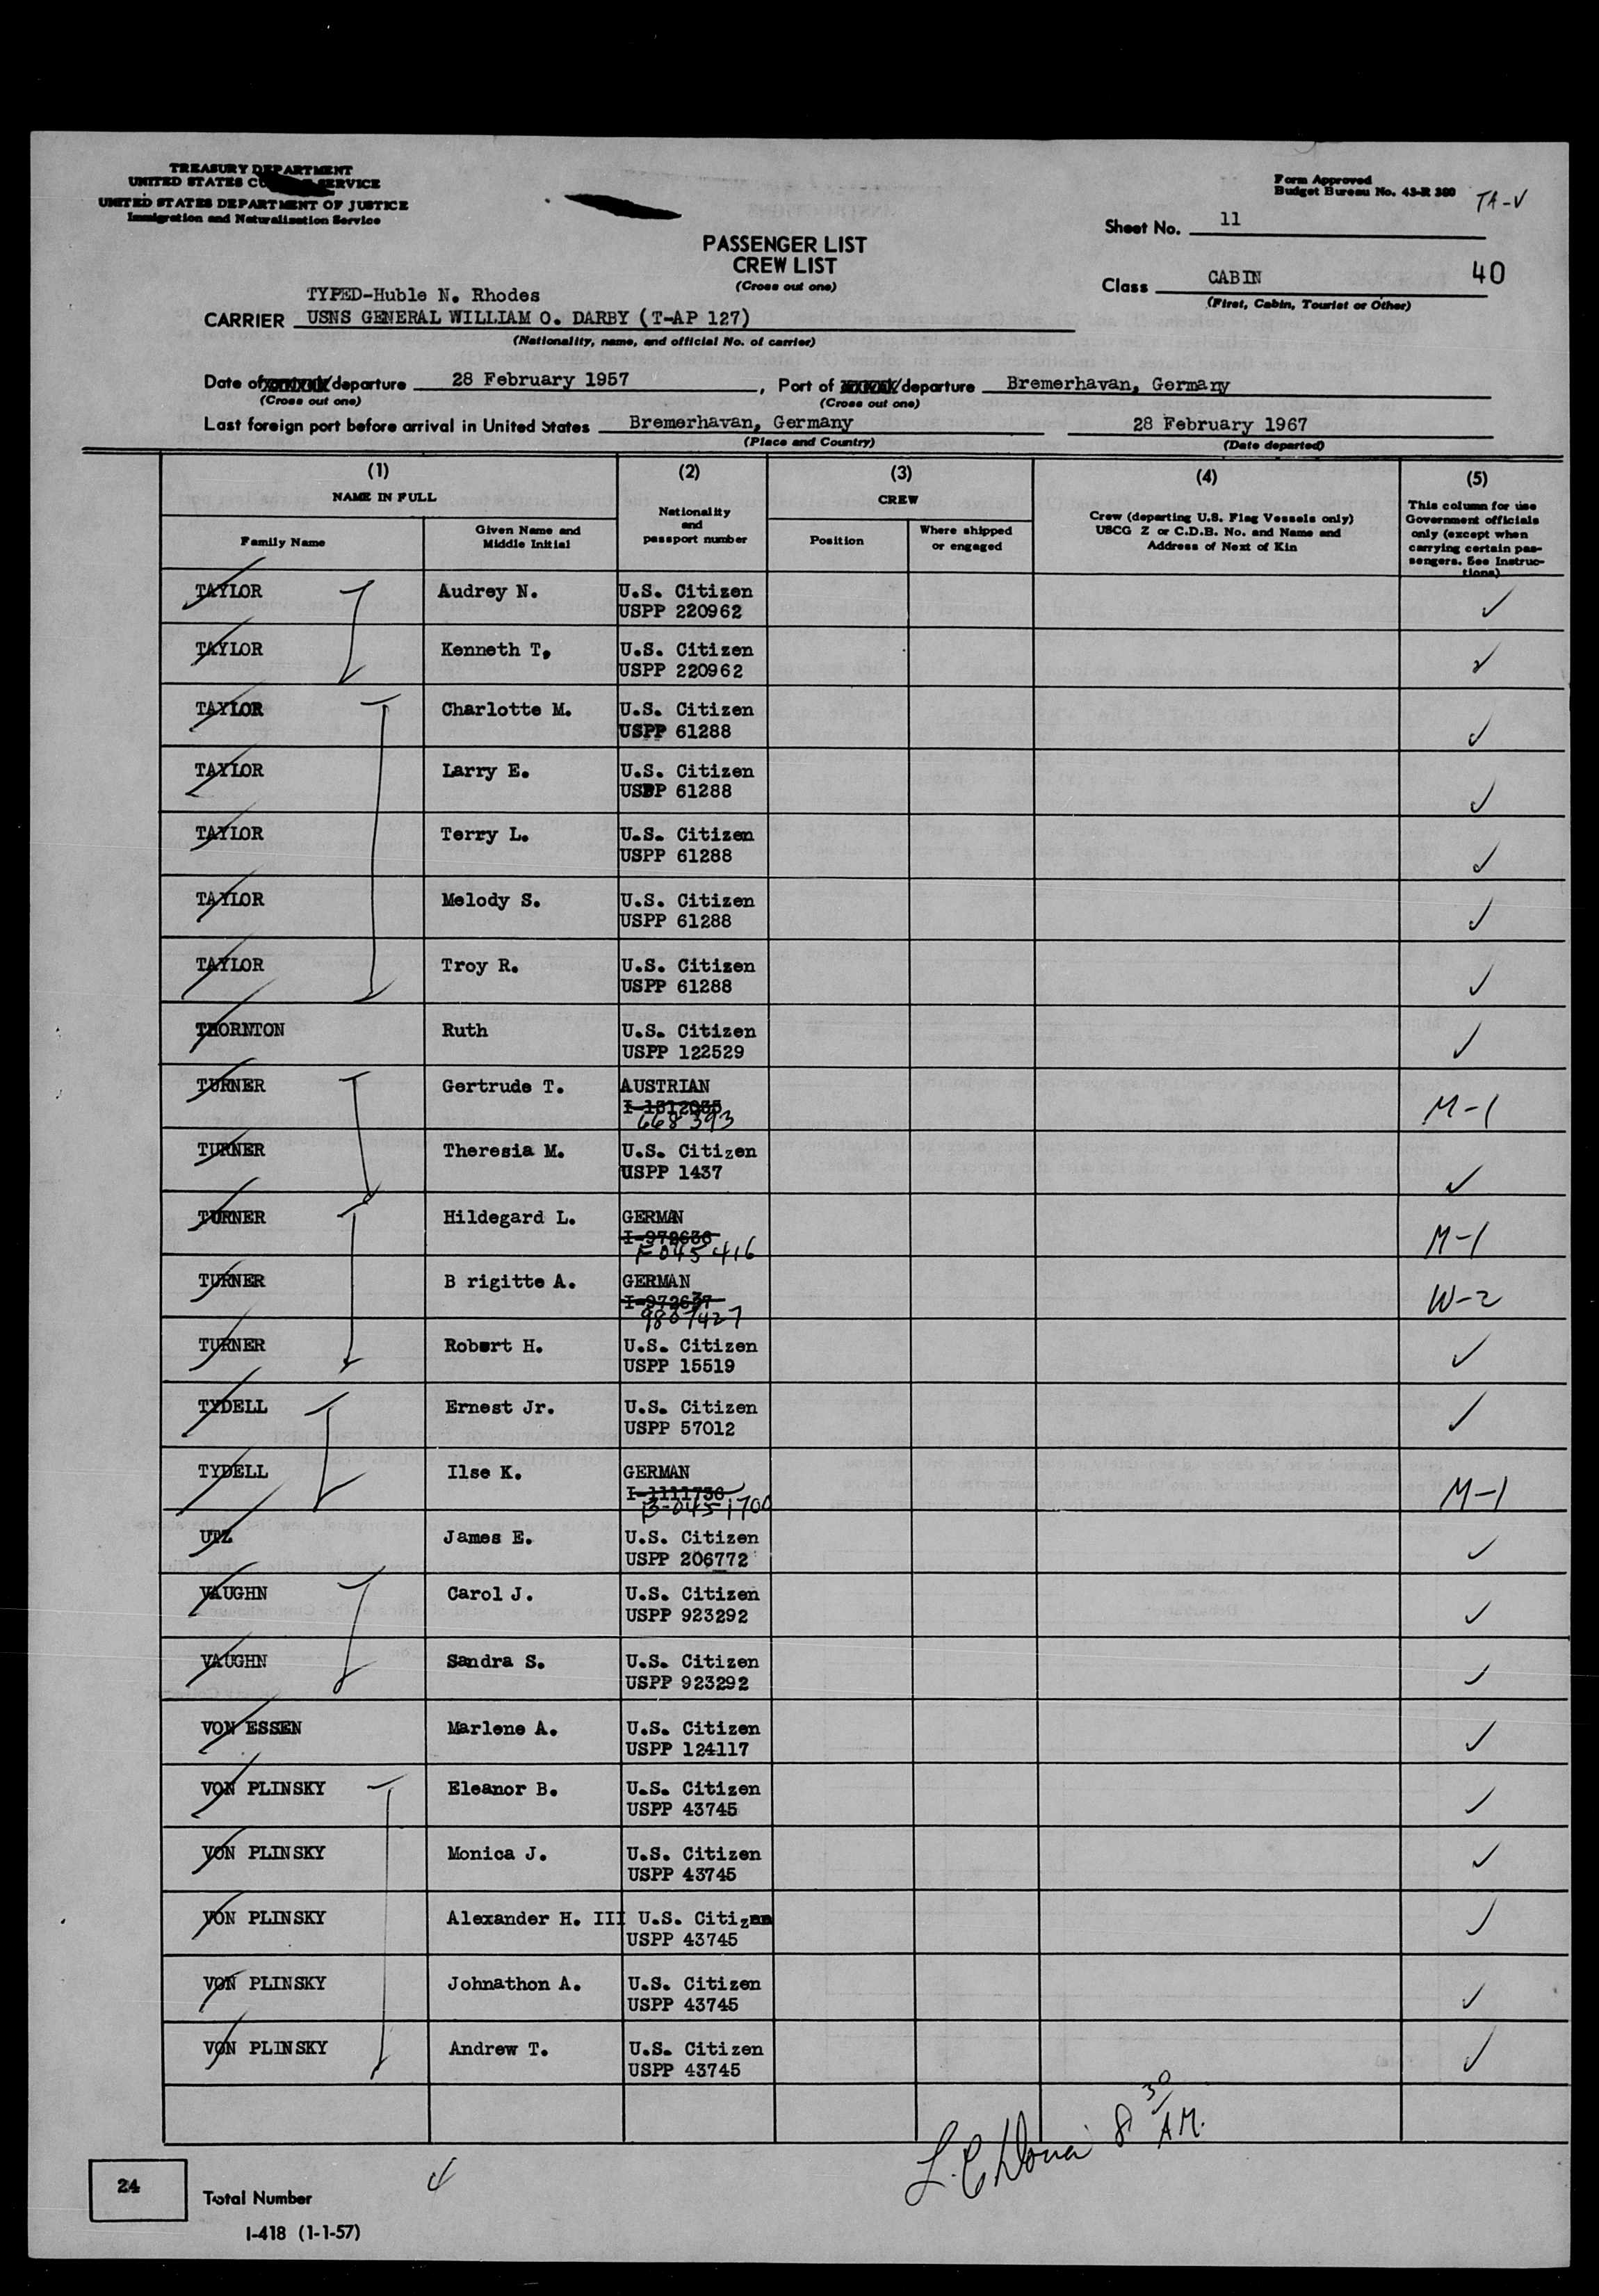 TREASURY DEPARTMENT
UNITED STATES CUSTOMS SERVICE
UNITED STATES DEPARTMENT OF JUSTICE
Immigration and Naturalization Service
Form Approved
Budget Bureau No. 43-R 360
TA-V
Sheet No. 11
PASSENGER LIST
CREW LIST
(Cross out one)
Class CABIN 40
(First, Cabin, Tourist or Other)
TYPED-Huble N. Rhodes
CARRIER USNS GENERAL WILLIAM O. DARBY (T-AP 127)
(Nationality, name, and official No. of carrier)
Date of departure 28 February 1957, Port of departure Bremerhavan, Germany
(Cross out one) (Cross out one)
Last foreign port before arrival in United States Bremerhavan, Germany 28 February 1967
(Place and Country) (Date departed)
(1) (2) (3) (4) (5)
NAME IN FULL
Family Name
Given Name and Middle Initial
Nationality and passport number
CREW
Position
Where shipped or engaged
Crew (departing U.S. Flag Vessels only)
USCG Z or C.D.B. No. and Name and
Address of Next of Kin
This column for use
Government officials
only (except when
carrying certain pas-
sengers. See Instruc-
tions)
TAYLOR Audrey N. U.S. Citizen ✓
USPP 220962
TAYLOR Kenneth T. U.S. Citizen ✓
USPP 220962
TAYLOR Charlotte M. U.S. Citizen ✓
USPP 61288
TAYLOR Larry E. U.S. Citizen ✓
USPP 61288
TAYLOR Terry L. U.S. Citizen ✓
USPP 61288
TAYLOR Melody S. U.S. Citizen ✓
USPP 61288
TAYLOR Troy R. U.S. Citizen ✓
USPP 61288
THORNTON Ruth U.S. Citizen ✓
USPP 122529
TURNER Gertrude T. AUSTRIAN M-1
668393
TURNER Theresia M. U.S. Citizen ✓
USPP 1437
TURNER Hildegard L. GERMAN M-1
I-972636
F045416
TURNER B rigitte A. GERMAN W-2
I-972637
9807427
TURNER Robert H. U.S. Citizen ✓
USPP 15519
TYDELL Ernest Jr. U.S. Citizen ✓
USPP 57012
TYDELL Ilse K. GERMAN M-1
I-1111736
UTZ James E. U.S. Citizen ✓
USPP 206772
VAUGHN Carol J. U.S. Citizen ✓
USPP 923292
VAUGHN Sandra S. U.S. Citizen ✓
USPP 923292
VON ESSEN Marlene A. U.S. Citizen ✓
USPP 124117
VON PLINSKY Eleanor B. U.S. Citizen ✓
USPP 43745
VON PLINSKY Monica J. U.S. Citizen ✓
USPP 43745
VON PLINSKY Alexander H. III U.S. Citizen ✓
USPP 43745
VON PLINSKY Johnathon A. U.S. Citizen ✓
USPP 43745
VON PLINSKY Andrew T. U.S. Citizen ✓
USPP 43745
8 30 A.M.
24 Total Number 4
I-418 (1-1-57)